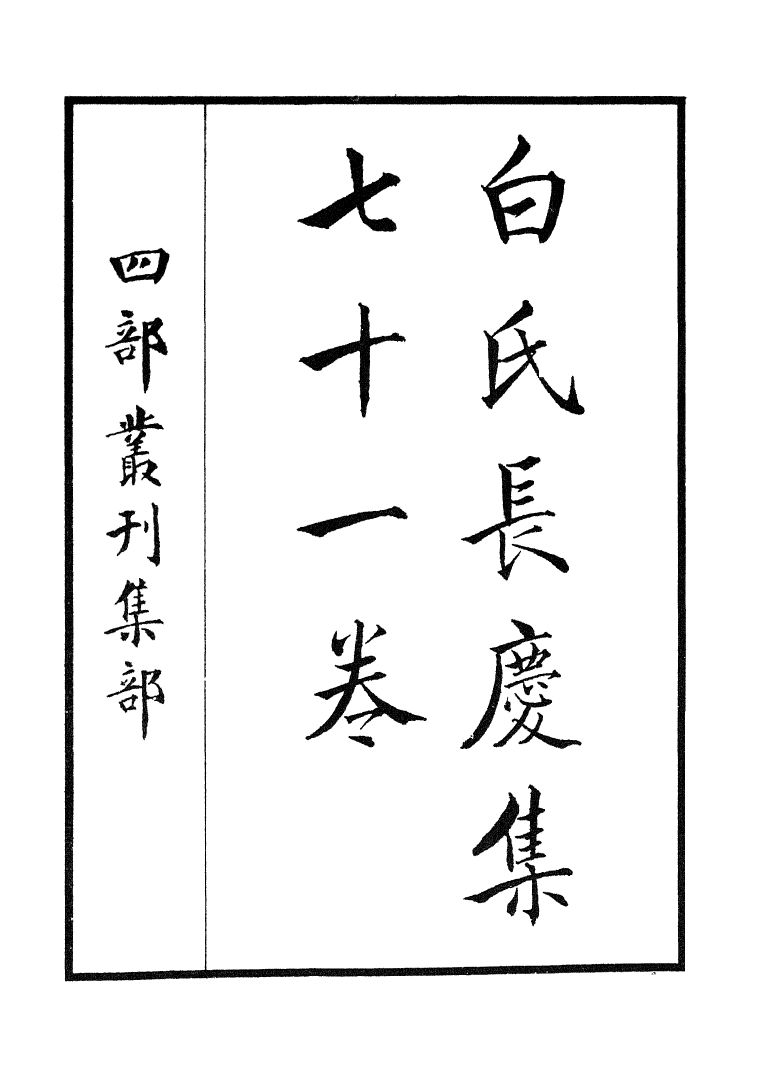 白氏長慶集
七十一卷
四部叢刊集部